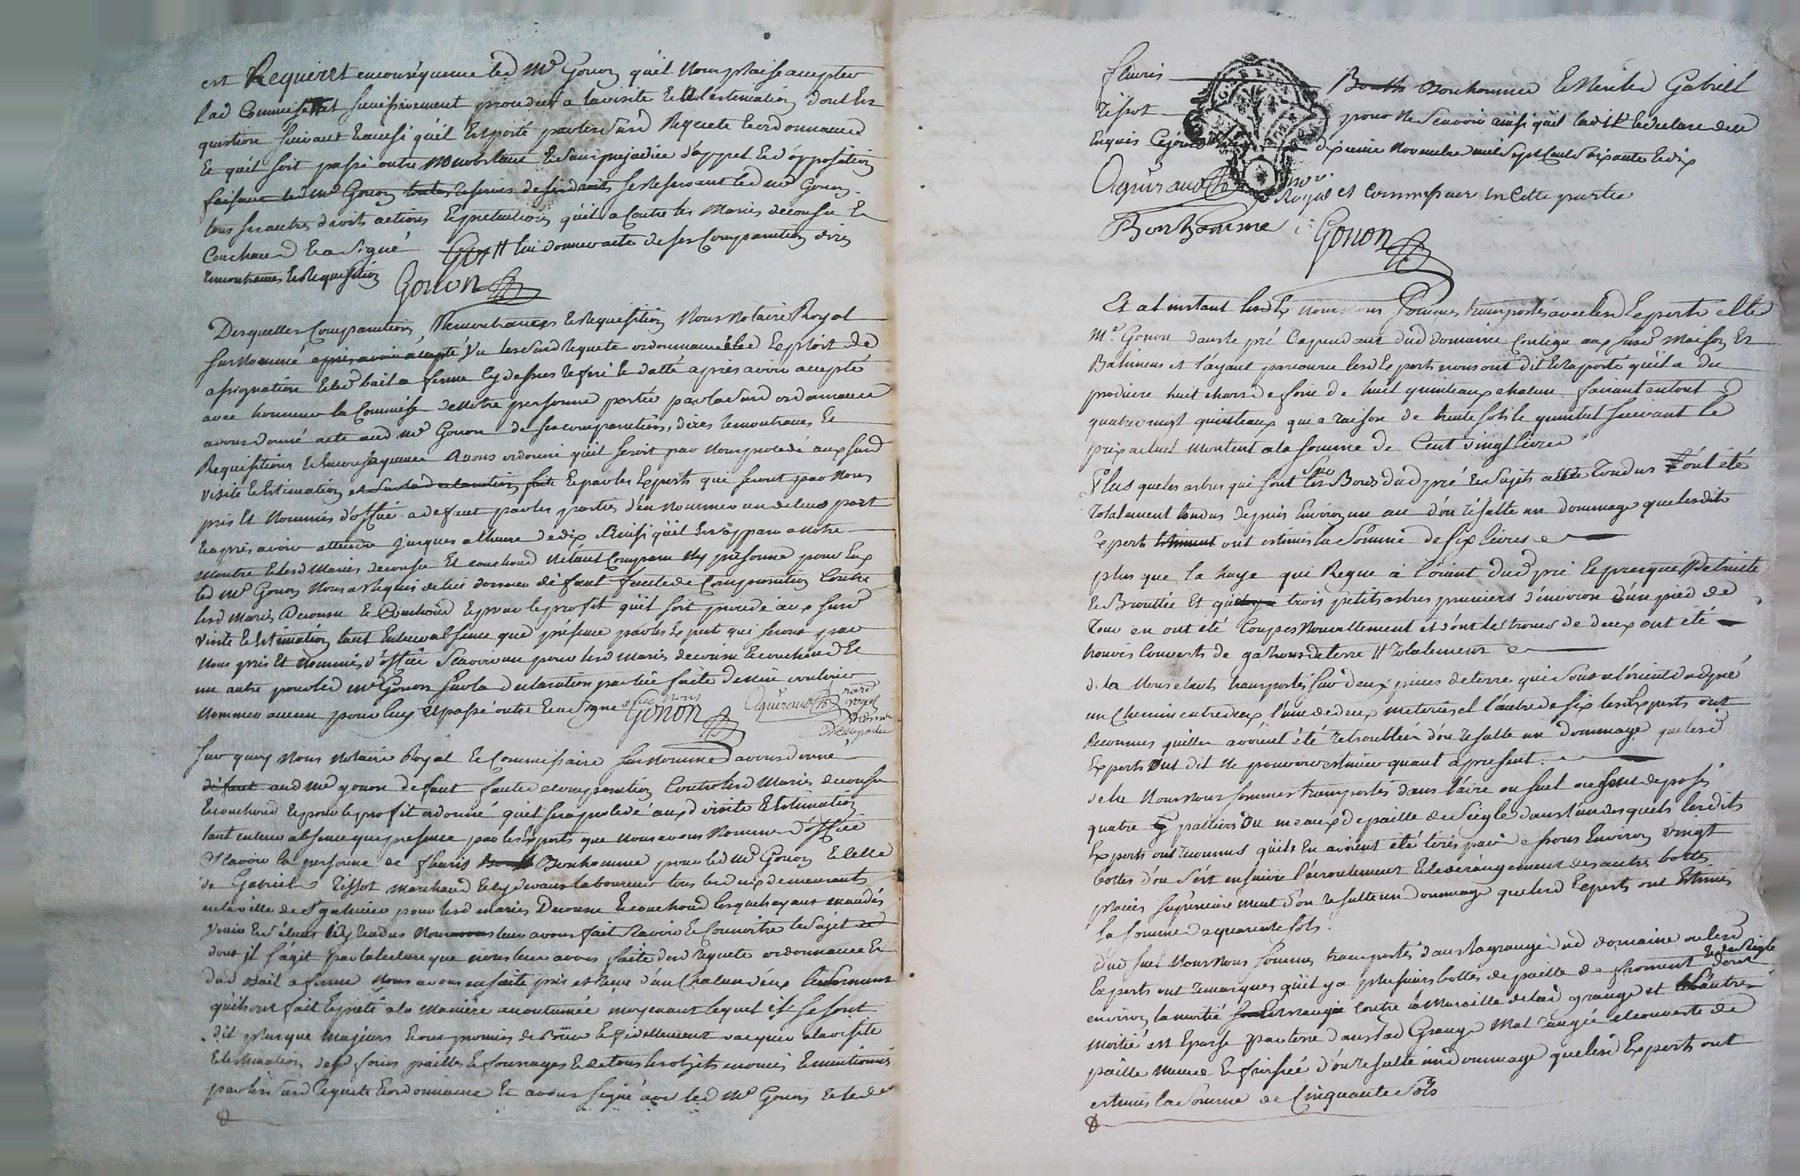 est Requerrt en conséquence led Me Gonon qu'il Nous plaise accepter
lad Commise Et successivement proceder a la visite Et Al'estimation dont Est
question suivant Et aussi qu'il Est porté par les susd Requete Et ordonnance
Et qu'il soit passé outre Nonobstant Et sans prejudice d'appel Et d'opposition
faisant led Me Gonon toutes reserves de ses droits se Reservant led Me Gonon
tous ses autres droits actions Et pretentions qu'il a Contre les Mariés decousu Et
Couchoud Et a signé lui donner acte de ses Comparution dires
remontrances Et Requisition Gonon
Desquelles Comparution Remontrances Et Requisition Nous Notaire Royal
sus Nommé apres avoir accepté Vu les susd Requete ordonnance Et led Exploit de
assignation Et led bail a ferme cy dessus referé Et datté apres avoir accepté
avec honneur la Commise de Notre personne portée par lad susd ordonnance
avons donné acte aud Me Gonon de ses comparution, dires remontrances Et
Requisitions Et En consequence Avons ordonné qu'il seroit par Nous procedé aux susd
visite Et Estimation et sur la declaration faite Et par les Experts qui seront par Nous
pris Et Nommés d'office a defaut par les parties d'en Nommer un de leur part
Et apres avoir attendu jusques a lheure de dix Ainsi qu'il Est apparu a Notre
Montre Et lesd Mariés decousu Et couchoud N'etant Comparu Ny personne pour Eux
led Me Gonon Nous a Requis de lui donner défaut faute de Comparution Contre
lesd Mariés Decousu Et Couchoud Et pour le profit qu'il soit procedé aux susd
visite Et Estimation tant En leur absence que présence par les Expert qui seront par
Nous pris Et Nommés d'office Scavoir un pour lesd Mariés decousu Et couchoud Et
un autre pour led Me Gonon sur la declaration par lui faite de n'en vouloir
Nommer aucun pour luy Et passé outre Et a signé Gonon Aguiraud
Sur quoy Nous Notaire Royal Et Commissaire sus Nommé avons donné
défaut aud Me gonon defaut faute de comparution Contre lesd Mariés decousu
Et couchoud Et pour le profit ordonné qu'il sera procedé aux d visite Et Estimation
tant en leur absence que presence par les Experts que Nous avons Nommé d'office
Scavoir la personne de fleuris Bonhomme pour led Me Gonon Et celle
de Gabriel Tissot Marchand Et cy devant laboureur tous les deux demeurants
en la ville de St galmier pour lesd mariés Decousu Et couchoud lesquels ayant mandés
venir Et s'étant icy rendus Nous leur avons fait scavoir Et Connoitre le Sujet
dont il s'agit par la lecture que nous leur avons faite desd requete ordonnance Et
dud bail a ferme Nous avons ensuite pris et Reçu d'un Chacun d'eux le serment
qu'ils ont fait Et preté a la maniere accoutumée moyenant lequel ils se sont
dit plus que majeurs Et ont promis de bien Et fidellement vacquer a la visite
Et estimation desd foins pailles Et fourrages Et de tous les objets enoncés Et mentionnés
par les susd Requete Et ordonnance Et avons signé avec led Me Gonon Et led
fleuris Bonhomme Et Non led Gabriel
Tissot pour Ne Scavoir ainsi qu'il la dit Et declaré de ce
Enquis Ce jourd'hui dixieme Novembre mil sept Cent soixante Et dix
Aguiraud Nre Royal et Commissaire en Cette partie
Bonhomme Gonon
Et a l'instant Nous Nous sommes transportés avec lesd Experts Et led
Me Gonon dans le pré dependant dud domaine Contigu aux susd Maison Et
Bâtiments et l'ayant parcouru lesd Experts nous ont dit Et raporté qu'il a du
produire huit chars de foin de huit quintaux chacun faisant en tout
quatre vingt quinteaux qui a raison de trente sols le quintal suivant le
prix actuel montent a la somme de Cent vingt livres
Plus que les arbres qui sont sur les Bors dud pré Et sujets a Etre Tondus l'ont été
totalement tondus depuis Environ un an d'où résulte un dommage que lesdits
Experts ont estimés la Somme de six livres
plus que la haye qui Regne à l'orient dud pré Et presque Detruite
Et Brouttée Et que trois petits arbres pruniers d'environ d'un pied de
Tour en ont été Coupés Nouvellement et dont les troncs de deux ont été
trouvés Couverts de gazhons de terre totalement
de la Nous etant transportés sur deux pieces de terre qui sont a l'orient dud pré
un chemin entre deux l'une de deux meterées et l'autre de six lesd Experts ont
Reconnus qu'elles avoient été retroublées d'ou résulte un dommage que lesd
Experts ont dit Ne pouvoir estimer quant a present
de la Nous nous sommes transportés dans l'aire ou suel ou sont deposés
quatre pailliers ou meaux de paille de seigle dans l'un desquels lesdits
Experts ont reconnus qu'ils En avoient été tirés par dessous Environ vingt
bottes d'ou s'est ensuivi l'écroulement Et le dérangement des autres bottes
placées superieurement d'ou resulte un dommage que lesd Experts ont Estimés
la somme de quarente sols
dud suel Nous Nous sommes transportés dans la grange dud domaine ou lesd
Experts ont remarqués qu'il y a plusieurs bottes de paille de froment Et de seigle dont
environ la moitié Contre la Muraille de lad grange et l'autre
moitié est Eparse par terre dans lad Grange Mal rangée et couverte de
paille menue Et froissée d'ou resulte un dommage que lesd Experts ont
estimés la Somme de Cinquante Sols